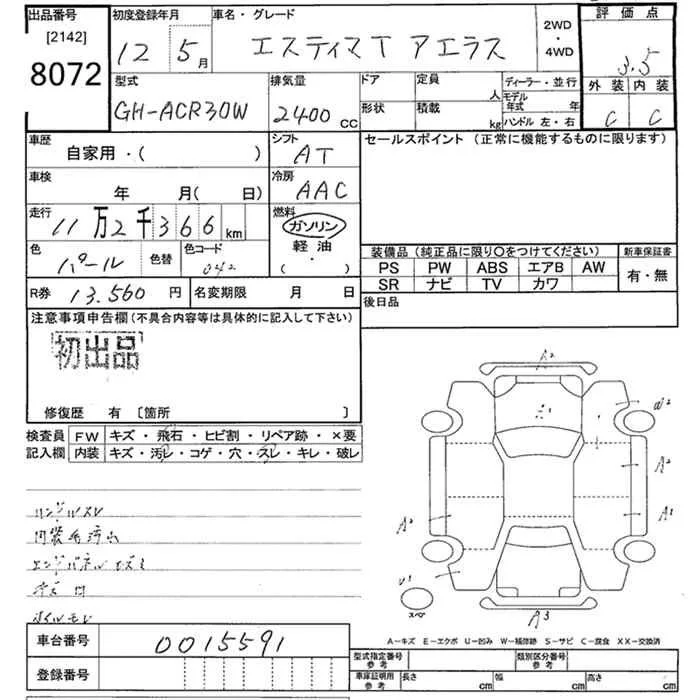 出品番号
[2142]
8072
初度登録年月
12 5月
車名・グレード
エスティマT アエラス
2WD
・
4WD
評価点
3.5
外装 内装
C C
型式
GH-ACR30W
排気量
2400 CC
ドア
形状
定員
人
積載
kg
ディーラー・並行
モデル年式 年
ハンドル 左・右
車歴
自家用・( )
シフト
AT
セールスポイント (正常に機能するものに限ります)
車検
年 月( 日)
冷房
AAC
走行
11万2千366km
燃料
ガソリン
軽油・
( ・ )
色
パール
色替
色コード
042
装備品 (純正品に限り○をつけてください)
PS PW ABS エアB AW
SR ナビ TV カワ
新車保証書
有・無
R券 13.560 円
名変期限 月 日
後日品
注意事項申告欄(不具合内容等は具体的に記入して下さい)
初出品
修復歴 有 〔箇所 〕
検査員記入欄
FW キズ・飛石・ヒビ割・リペア跡・×要
内装 キズ・汚レ・コゲ・穴・スレ・キレ・破レ
ハンドルスレ
内装毛汚れ
A2
A1
W2
A2
A1
A2
U1
スペア
A3
A-キズ E-エクボ U-凹み W-補修跡 S-サビ C-腐食 XX-交換済
車台番号 0015591
登録番号
型式指定番号 参考
類別区分番号 参考
車庫証明用 参考
長さ cm
幅 cm
高さ cm